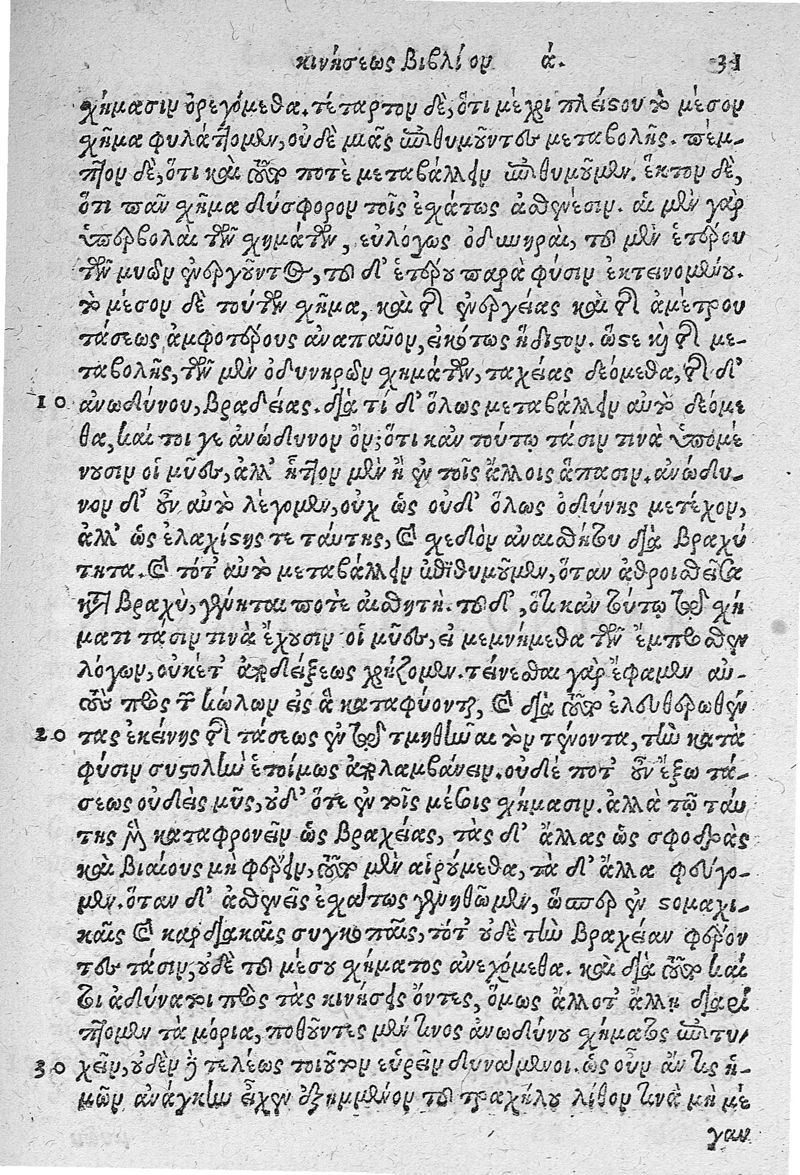 κινήσεως βιβλίον ά. 31
χήμασιν ὀρεγόμεθα. τέταρτον δὲ, ὅτι μέχρι πλείστου τὸ μέσον
χῆμα φυλάττομεν, οὐδὲ μιᾶς ἐπιθυμοῦντες μεταβολῆς. πέμ-
πτον δὲ, ὅτι καὶ τοῦτό ποτε μεταβάλλειν ἐπιθυμοῦμεν. ἕκτον δὲ,
ὅτι πᾶν χῆμα δύσφορον τοῖς ἐχάτως ἀσθενέσιν. αἱ μὲν γὰρ
ὑπερβολαὶ τῶν χημάτων, εὐλόγως ὀδυνηραὶ, τοῦ μὲν ἑτέρου
τῶν μυῶν ἐνεργοῦντος, τοῦ δ' ἑτέρου παρὰ φύσιν ἐκτεινομένου.
τὸ μέσον δὲ τούτων χῆμα, καὶ τῆς ἐνεργείας καὶ τῆς ἀμέτρου
τάσεως ἀμφοτέρους ἀναπαῦον, εἰκότως ἥδιστον. ὥστε καὶ τῆς με-
ταβολῆς, τῶν μὲν ὀδυνηρῶν χημάτων, ταχείας δεόμεθα, τῆς δ'
10 ἀνωδύνου, βραδείας. διὰ τί δ' ὅλως μεταβάλλειν αὐτὸ δεόμε
θα, καί τοι γε ἀνώδυνον ὄν; ὅτι κἀν τούτῳ τάσιν τινὰ ὑπομέ
νουσιν οἱ μῦες, ἀλλ' ἧττον μὲν ἢ ἐν τοῖς ἄλλοις ἅπασιν. ἀνώδυ-
νον δ' οὖν αὐτὸ λέγομεν, οὐχ ὡς οὐδ' ὅλως ὀδύνης μετέχον,
ἀλλ' ὡς ἐλαχίστης τε ταύτης, καὶ χεδὸν ἀναισθήτου διὰ βραχύ
τητα. καὶ τότ' αὐτὸ μεταβάλλειν ἐπιθυμοῦμεν, ὅταν ἀθροισθεῖσα
κατὰ βραχὺ, γένηται ποτὲ αἰσθητὴ. τοῦ δ', ὅτι κἀν τούτῳ τῷ χή
ματι τάσιν τινὰ ἔχουσιν οἱ μῦες, εἰ μεμνήμεθα τῶν ἔμπροσθεν
λόγων, οὐκέτ' ἀποδείξεως χρήζομεν. τείνεσθαι γὰρ ἔφαμεν αὐ-
τοὺς πρὸς τῶν κώλων εἰς ἃ καταφύονται, καὶ διὰ τοῦτο ἐλευθερωθέν
20 τας ἐκείνης τῆς τάσεως ἐν τῷ τμηθῆναι τὸν τένοντα, τὴν κατὰ
φύσιν συστολὴν ἑτοίμως ἀπολαμβάνειν. οὐδέ ποτ' οὖν ἔξω τά-
σεως οὐδεὶς μῦς, οὐδ' ὅτε ἐν τοῖς μέσοις χήμασιν. ἀλλὰ τῷ ταύ
της μὲν καταφρονεῖν ὡς βραχείας, τὰς δ' ἄλλας ὡς σφοδρὰς
καὶ βιαίους μὴ φέρειν, τοῦτο μὲν αἱρούμεθα, τὰ δ' ἄλλα φεύγο-
μεν. ὅταν δ' ἀσθενεῖς ἐχάτως γενηθῶμεν, ὥσπερ ἐν στομαχι-
καῖς καὶ καρδιακαῖς συγκοπαῖς, τότ' οὐδὲ τὴν βραχεῖαν φέρον
τες τάσιν, οὐδὲ τοῦ μέσου χήματος ἀνεχόμεθα. καὶ διὰ τοῦτο καί
τοι ἀδύνατοι πρὸς τὰς κινήσεις ὄντες, ὅμως ἄλλοτ' ἄλλῃ διαρί
πτομεν τὰ μόρια, ποθοῦντες μέν τινος ἀνωδύνου χήματος ἐπιτυ-
30 χεῖν, οὐδὲν δὲ τελέως τοιοῦτον εὑρεῖν δυνάμενοι. ὡς οὖν ἄν τις ἡ-
μῶν ἀνάγκην εἶχεν ἐξημμένον τοῦ τραχήλου λίθον τινὰ μὴ μέ
γαν